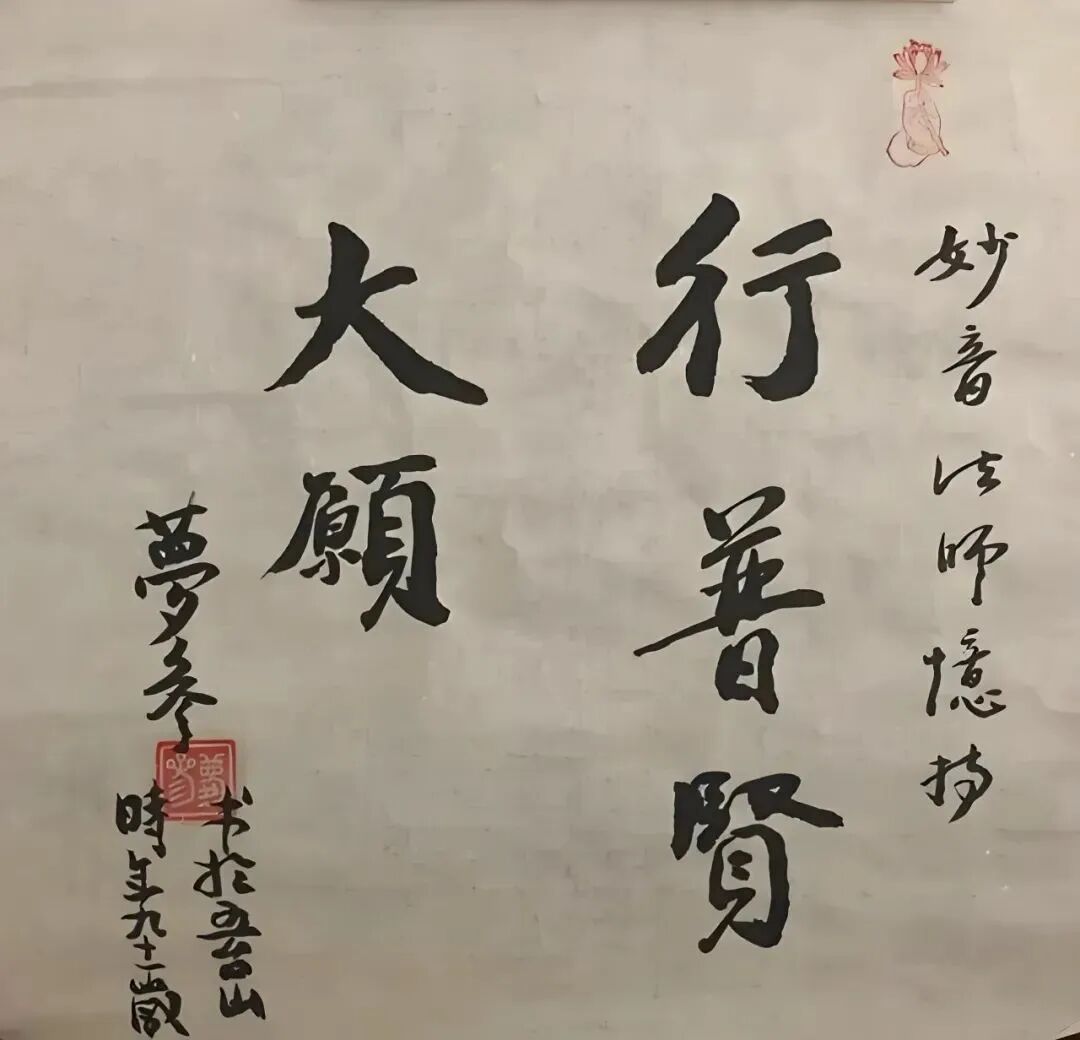 妙音法师憶持
行普賢
大願
夢参
书於五台山
時年九十一歲
夢参